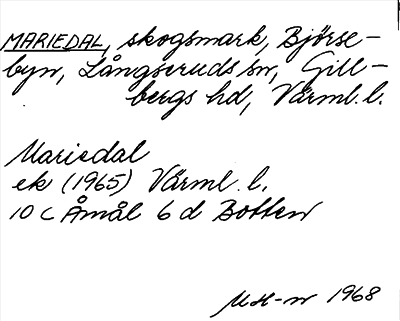 MARIEDAL, skogsmark, Björse-
byn, Långseruds sn, Gill-
bergs hd, Värml. l.
Mariedal
ek (1965) Värml. l.
10 C Åmål 6 d Botten
1968